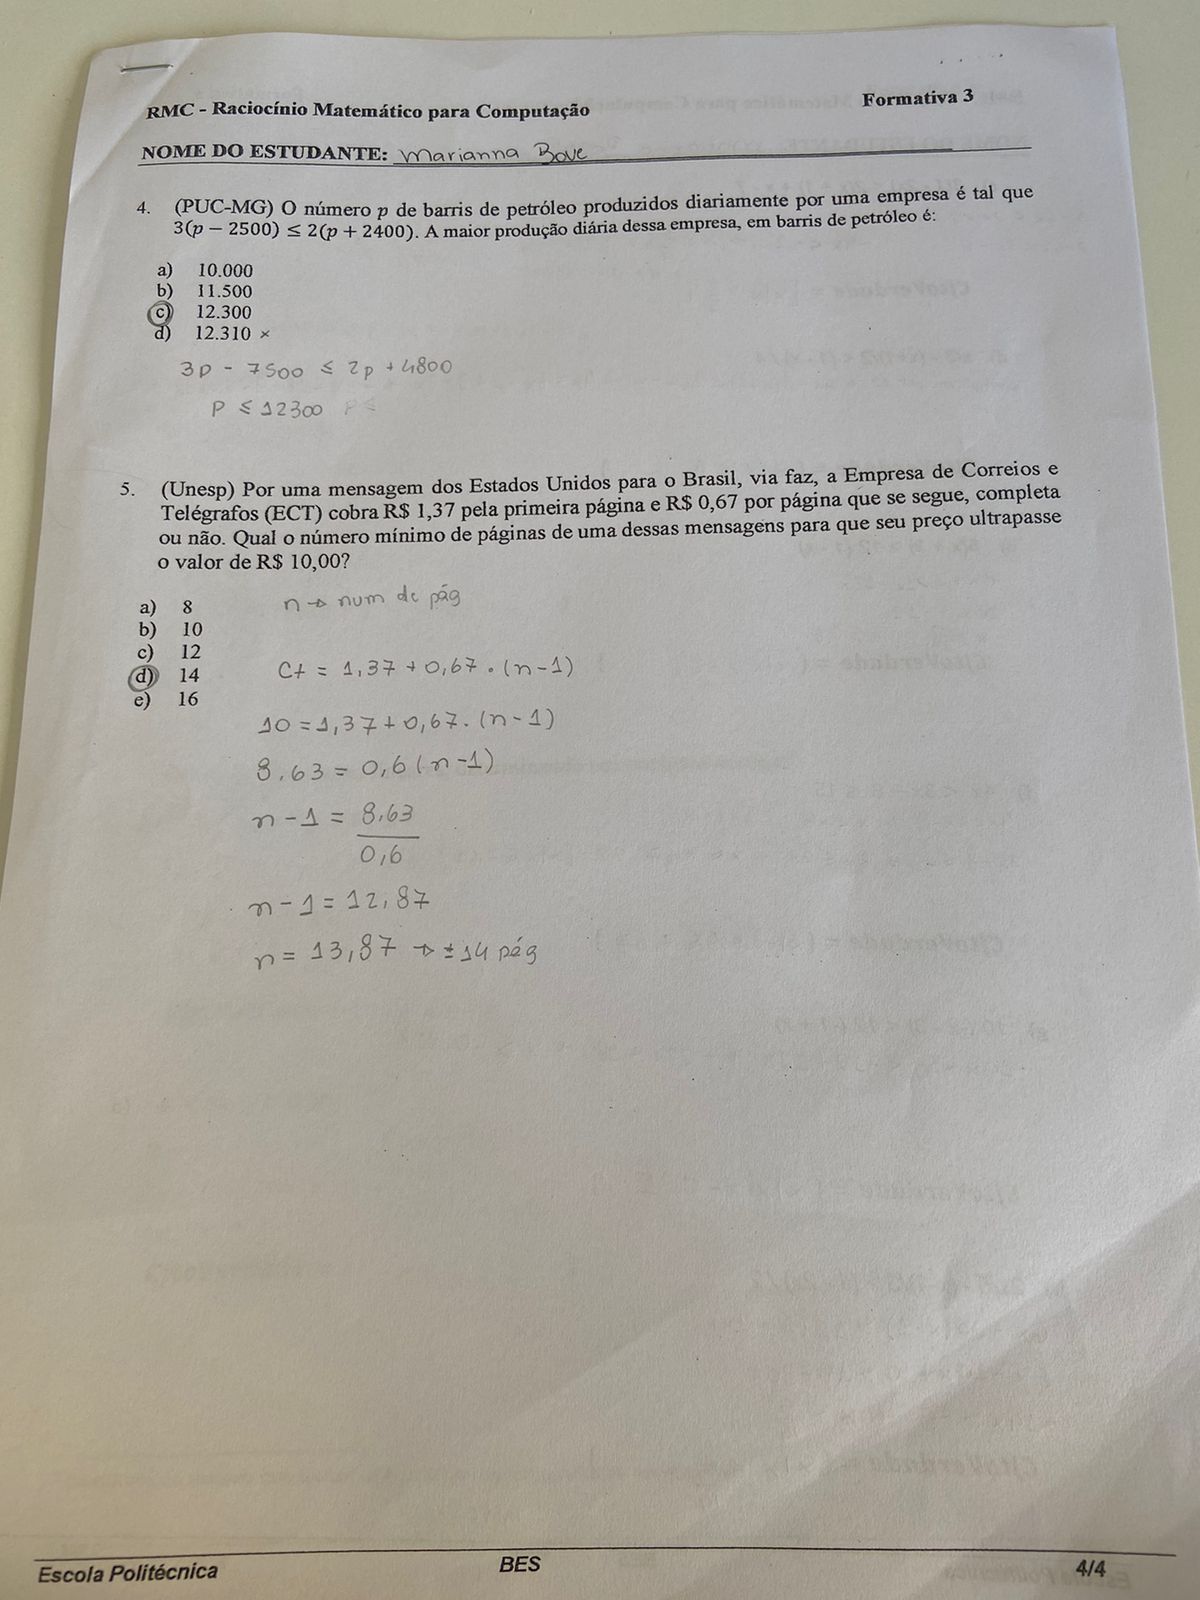 RMC - Raciocínio Matemático para Computação
Formativa 3
NOME DO ESTUDANTE: Marianna Bove
4. (PUC-MG) O número p de barris de petróleo produzidos diariamente por uma empresa é tal que
3(p − 2500) ≤ 2(p + 2400). A maior produção diária dessa empresa, em barris de petróleo é:
a) 10.000
b) 11.500
c) 12.300
d) 12.310 x
3p - 7500 ≤ 2p + 4800
P ≤ 12300 P ≤
5. (Unesp) Por uma mensagem dos Estados Unidos para o Brasil, via faz, a Empresa de Correios e
Telégrafos (ECT) cobra R$ 1,37 pela primeira página e R$ 0,67 por página que se segue, completa
ou não. Qual o número mínimo de páginas de uma dessas mensagens para que seu preço ultrapasse
o valor de R$ 10,00?
a) 8
b) 10
c) 12
d) 14
e) 16
n → num de pág
Ct = 1,37 + 0,67 . (n-1)
10 = 1,37 + 0,67. (n-1)
8,63 = 0,6 (n-1)
n - 1 = 8,63
0,6
n - 1 = 12,87
n = 13,87 → ± 14 pág
Escola Politécnica
BES
4/4